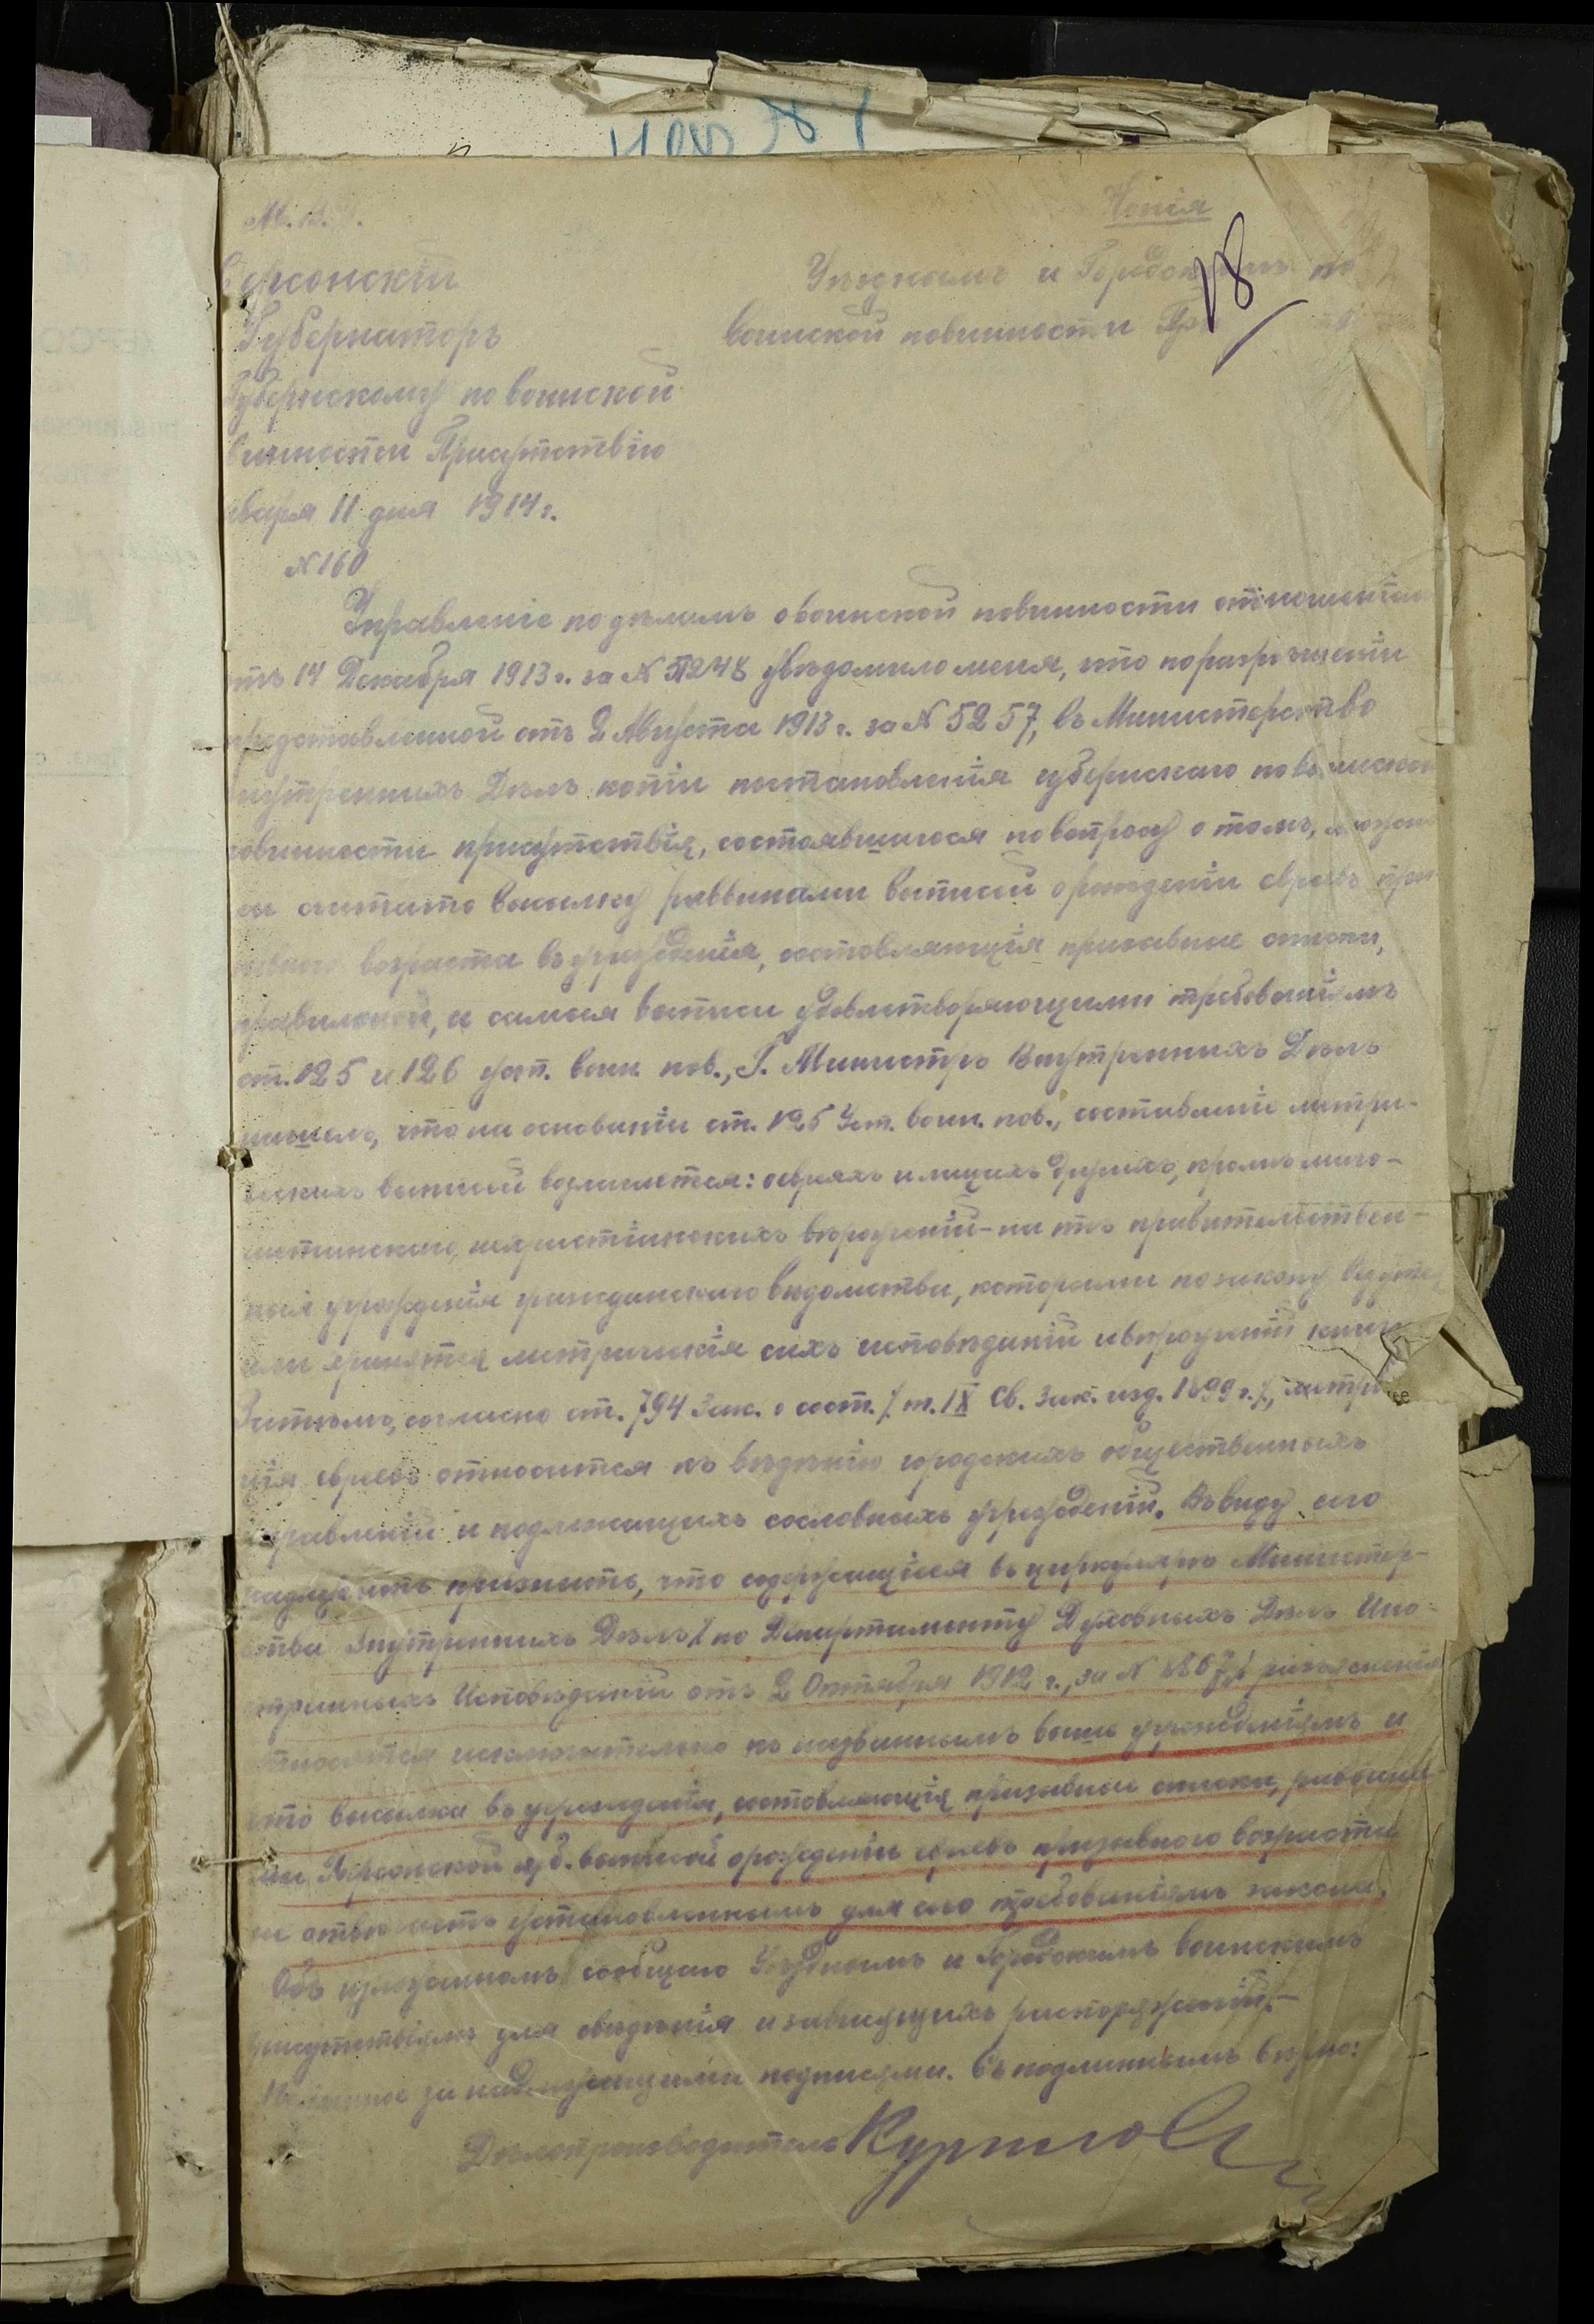 Копія
М. В. Д.
Херсонскій
Губернаторъ
Уѣзднымъ и Городскимъ по
воинской повинности
Губернскому по воинской
винности Присутствію
нваря 11 дня 1914 г.
№ 160
18
Управленіе по дѣламъ о воинской повинности отношеніем
отъ 14 Декабря 1913 г. за № 51248 увѣдомило меня, что по разрѣшеніи
представленной отъ 2 Августа 1913 г. за № 5257, въ Министерство
нутреннихъ Дѣлъ копіи постановленія губернскаго по воинской
овинности присутствія, состоявшагося по вопросу о томъ, можно
ли считать высылку раввинами выписей о рожденіи евреевъ при
ывного возраста въ учрежденія, составляющія призывные списки,
правильной, и самыя выписи удовлетворяющими требованіямъ
ст. 125 и 126 уст. воин. пов., Г. Министръ Внутреннихъ Дѣлъ
нашелъ, что на основаніи ст. 125 Уст. воин. пов., составленіе метри-
ческихъ выписей возлагается: о евреяхъ и лицахъ другихъ, кромѣ маго-
метанскаго, нехристіанскихъ вѣроученій - на тѣ правительствен-
ныя учрежденія гражданскаго вѣдомства, которыми по закону ведутся
или хранятся метрическія сихъ исповѣданій и вѣроученій книги
Затѣмъ, согласно ст. 794 Зак. о сост. /т. IX Св. Зак. изд. 1899 г./, метри
ція евреевъ относится къ вѣдѣнію городскихъ общественныхъ
управленій и подлежащихъ сословныхъ учрежденій. Въ виду сего
надлежитъ признать, что содержащіяся въ циркулярѣ Министер-
ства Внутреннихъ Дѣлъ /по Департаменту Духовныхъ Дѣлъ Ино-
странныхъ Исповѣданій отъ 2 Октября 1912 г., за № / разъясненія
относятся исключительно къ названнымъ выше учрежденіямъ и
что высылка въ учрежденія, составляющія призывные списки, раввина
ми Херсонской губ. выписей о рожденіи евреевъ призывного возраста
не отвѣчаетъ установленнымъ для сего требованіямъ закона.
Объ изложенномъ сообщаю Уѣзднымъ и Городскимъ воинскимъ
рисутствіямъ для свѣдѣнія и зависящихъ распоряженій.-
Подлинное за надлежащими подписями. Съ подлиннымъ вѣрно:
Дѣлопроизводитель